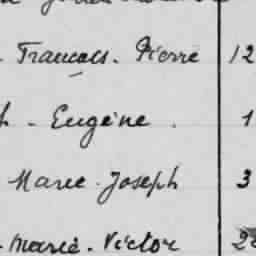 - Francois - Pierre 12
h - Eugène . 1
Marie - Joseph 3
- Marie - Victor